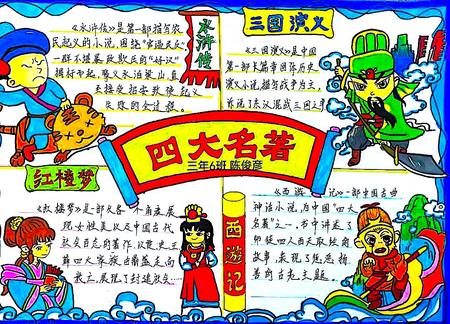 水浒传
《水浒传》是第一部描写农
民起义的小说,围绕"官逼民反"
一群不堪暴政欺压的"好汉"
揭竿而起,聚义水泊梁山,直
至接受招安致使起义
失败的全过程。
三国演义
《三国演义》是中国
第一部长篇章回体历史
演义小说,描写战争为主,
诉说了东汉
四大名著
三年6班 陈俊彦
红楼梦
《红楼梦》是一部从各个角度展
现女性美以及中国古代
社会百态的著作,以贾史王
薛四大家族
展现了封建
西游记
《西游记》一部中国古典
神话小说,为中国"四大
名著"之一,书中讲述了
唐僧四人西天取经的
故事,表现了惩恶扬
善的古老主题。